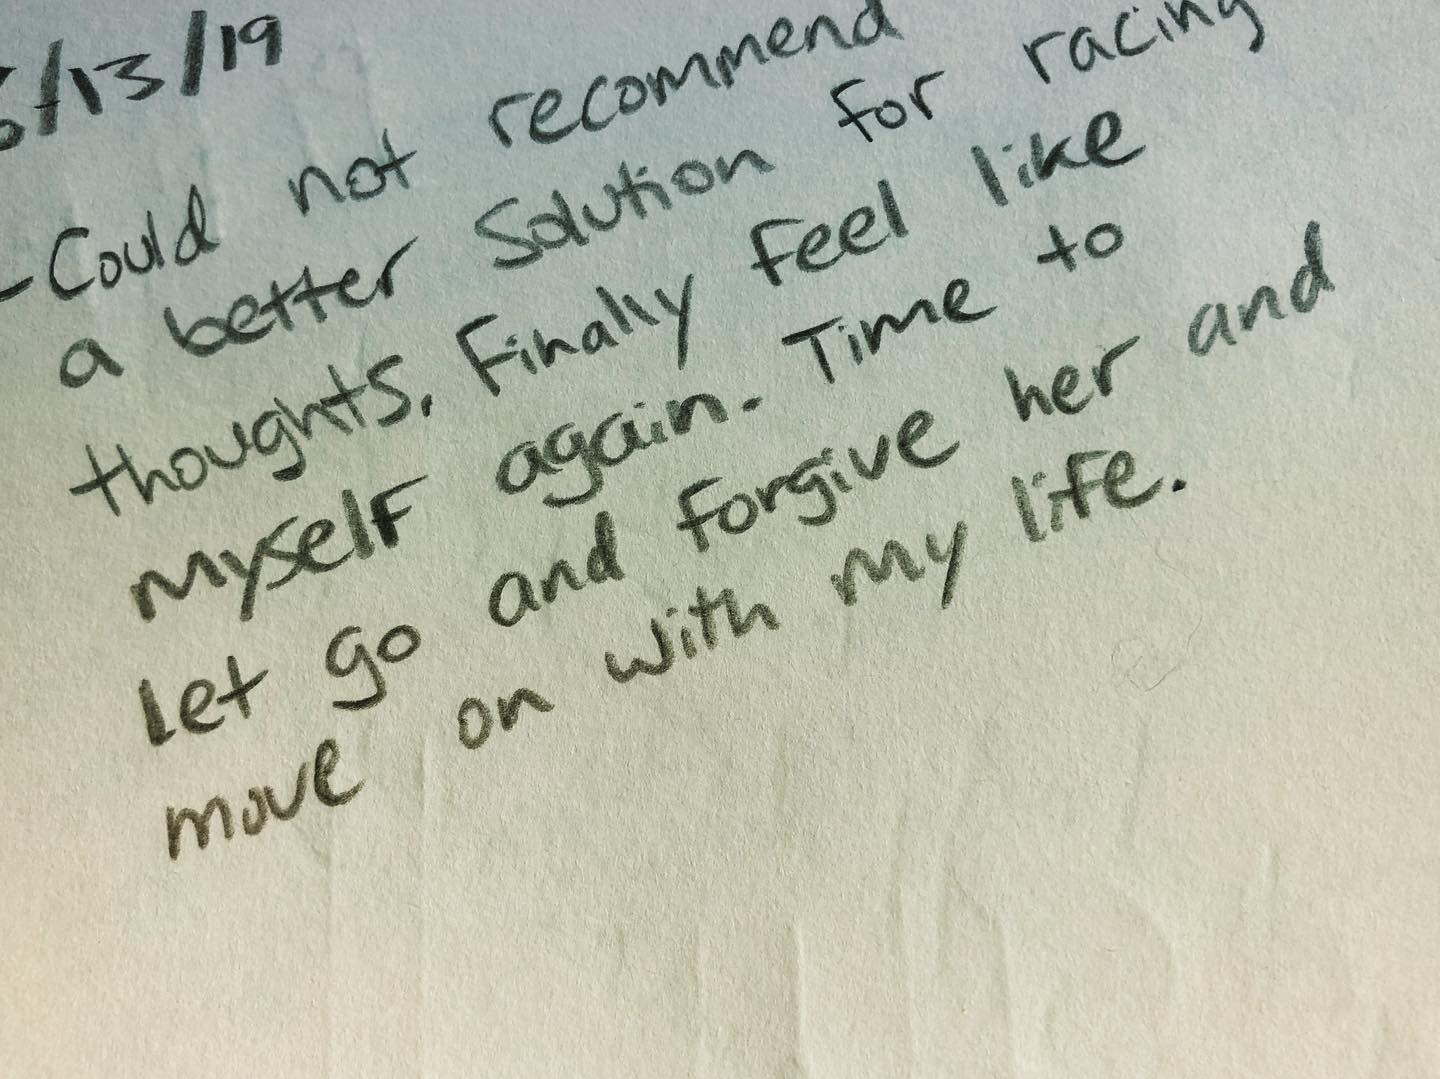 /13/19
- Could not recommend
a better Solution for racing
thoughts. Finally feel like
myself again. Time to
let go and forgive her and
move on with my life.